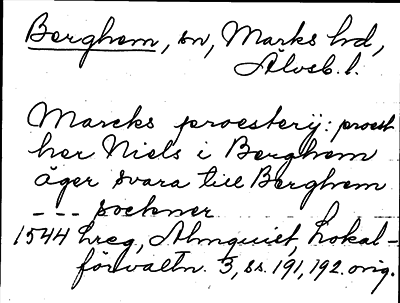 Berghem, sn, Marks hd,
Älvsb. l.
Marcks proesterij: proest
her Niels i Berghem
äger svara till Berghem
--- sockner
1544 hreg, Almquist, Lokal-
förvaltn. 3, ss. 191, 192. orig.